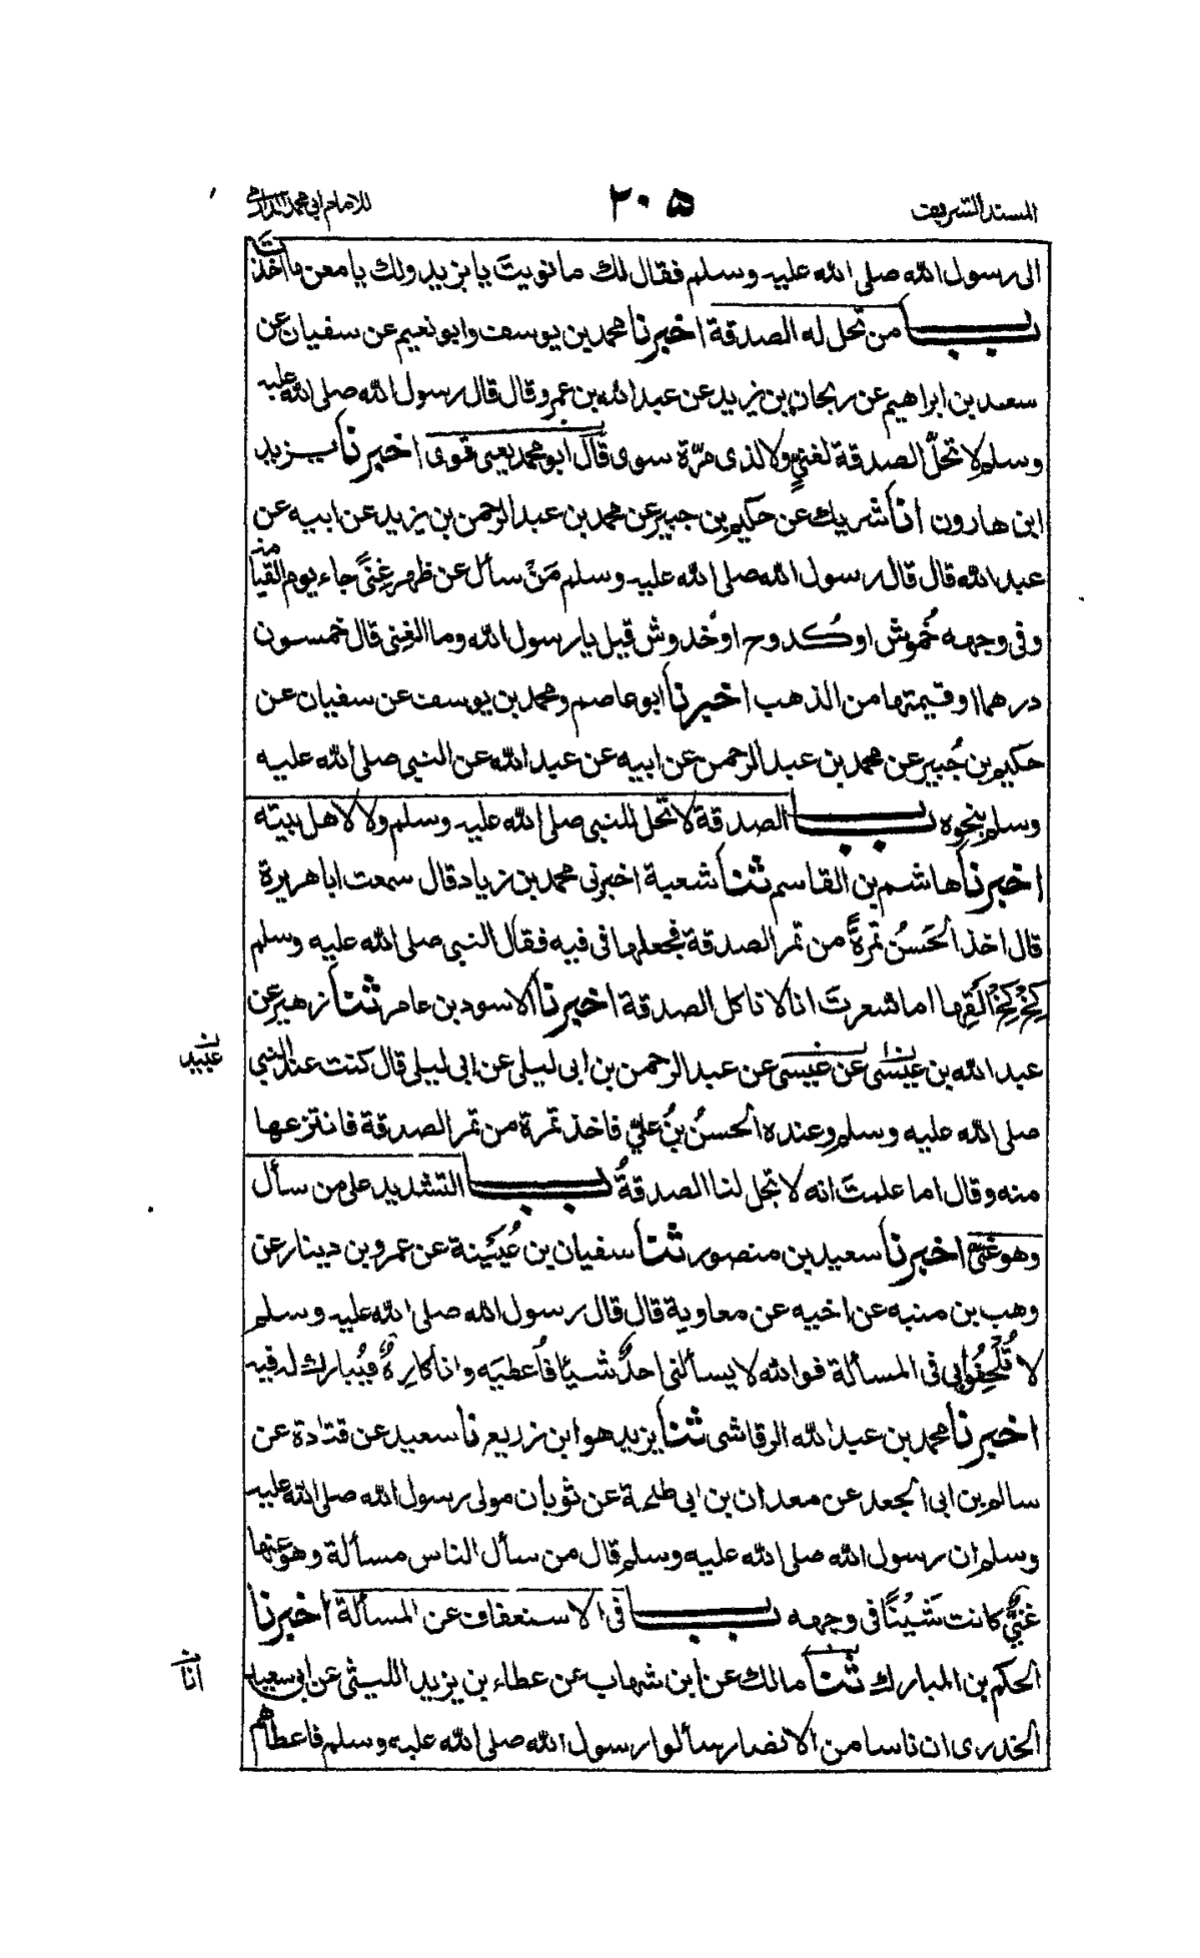 المسند الشريف ٢٠٥ للامام ابى محمد الدارمى
الى رسول الله صلى الله عليه وسلم فقال لك ما نويت يا يزيد ولك يا معن ما اخذت
باب من تحل له الصدقة اخبرنا محمد بن يوسف وابو نعيم عن سفيان عن
سعد بن ابراهيم عن ريحان بن يزيد عن عبد الله بن عمرو قال قال رسول الله صلى الله عليه
وسلم لا تحلّ الصدقة لغنيٍّ ولا لذى مرّة سوى قال ابو محمد يعنى قوى اخبرنا يزيد
ابن هارون انا شريك عن حكيم بن جبير عن محمد بن عبد الرحمن بن يزيد عن ابيه عن
عبد الله قال قال رسول الله صلى الله عليه وسلم مَنْ سأل عن ظهر غِنًى جاء يوم القيامة
وفى وجهه خُموش او كُدوح او خُدوش قيل يا رسول الله وما الغِنى قال خمسون
درهما او قيمتها من الذهب اخبرنا ابو عاصم ومحمد بن يوسف عن سفيان عن
حكيم بن جُبير عن محمد بن عبد الرحمن عن ابيه عن عبد الله عن النبى صلى الله عليه
وسلم بنحوه باب الصدقة لا تحل للنبى صلى الله عليه وسلم ولا لاهل بيته
اخبرنا هاشم بن القاسم ثنا شعبة اخبرنى محمد بن زياد قال سمعت ابا هريرة
قال اخذ الحَسَنُ تمرةً من تمر الصدقة فجعلها فى فيه فقال النبى صلى الله عليه وسلم
كِخْ كِخْ اَلْقِها اما شعرتَ انا لا ناكل الصدقة اخبرنا الاسود بن عامر ثنا زهير عن
عبد الله بن عيسى عن عيسى عن عبد الرحمن بن ابى ليلى عن ابى ليلى قال كنت عند النبى
عبيد
صلى الله عليه وسلم وعنده الحسنُ بنُ علىّ فاخذ تمرة من تمر الصدقة فانتزعها
منه وقال اما علمتَ انه لا تحل لنا الصدقةُ باب التشديد على من سأل
وهو غنىّ اخبرنا سعيد بن منصور ثنا سفيان بن عُيَيْنة عن عمرو بن دينار عن
وهب بن منبه عن اخيه عن معاوية قال قال رسول الله صلى الله عليه وسلم
لا تُلْحِفُوا بى فى المسألة فوالله لا يسألنى احدٌ شيئا فاُعطيَه وانا كارِهٌ فيُبارك له فيه
اخبرنا محمد بن عبد الله الرقاشى ثنا يزيد هو ابن زريع نا سعيد عن قتادة عن
سالم بن ابى الجعد عن معدان بن ابى طلحة عن ثوبان مولى رسول الله صلى الله عليه
وسلم ان رسول الله صلى الله عليه وسلم قال من سأل الناس مسألة وهو عنها
غنىٌّ كانت شَيْنًا فى وجهه باب فى الاستعفاف عن المسألة اخبرنا
الحكم بن المبارك ثنا مالك عن ابن شهاب عن عطاء بن يزيد الليثى عن ابى سعيد
انا
الخدرى ان ناسا من الانصار سألوا رسول الله صلى الله عليه وسلم فاعطاهم